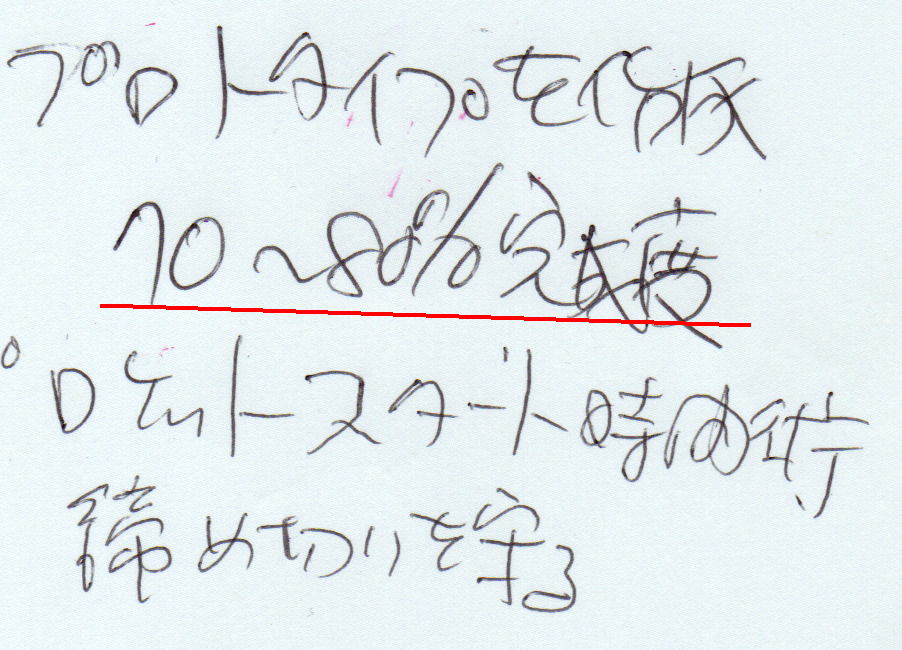 プロトタイプを作成
70~80%完成度
。ロケットスタート時間術
締め切りを守る